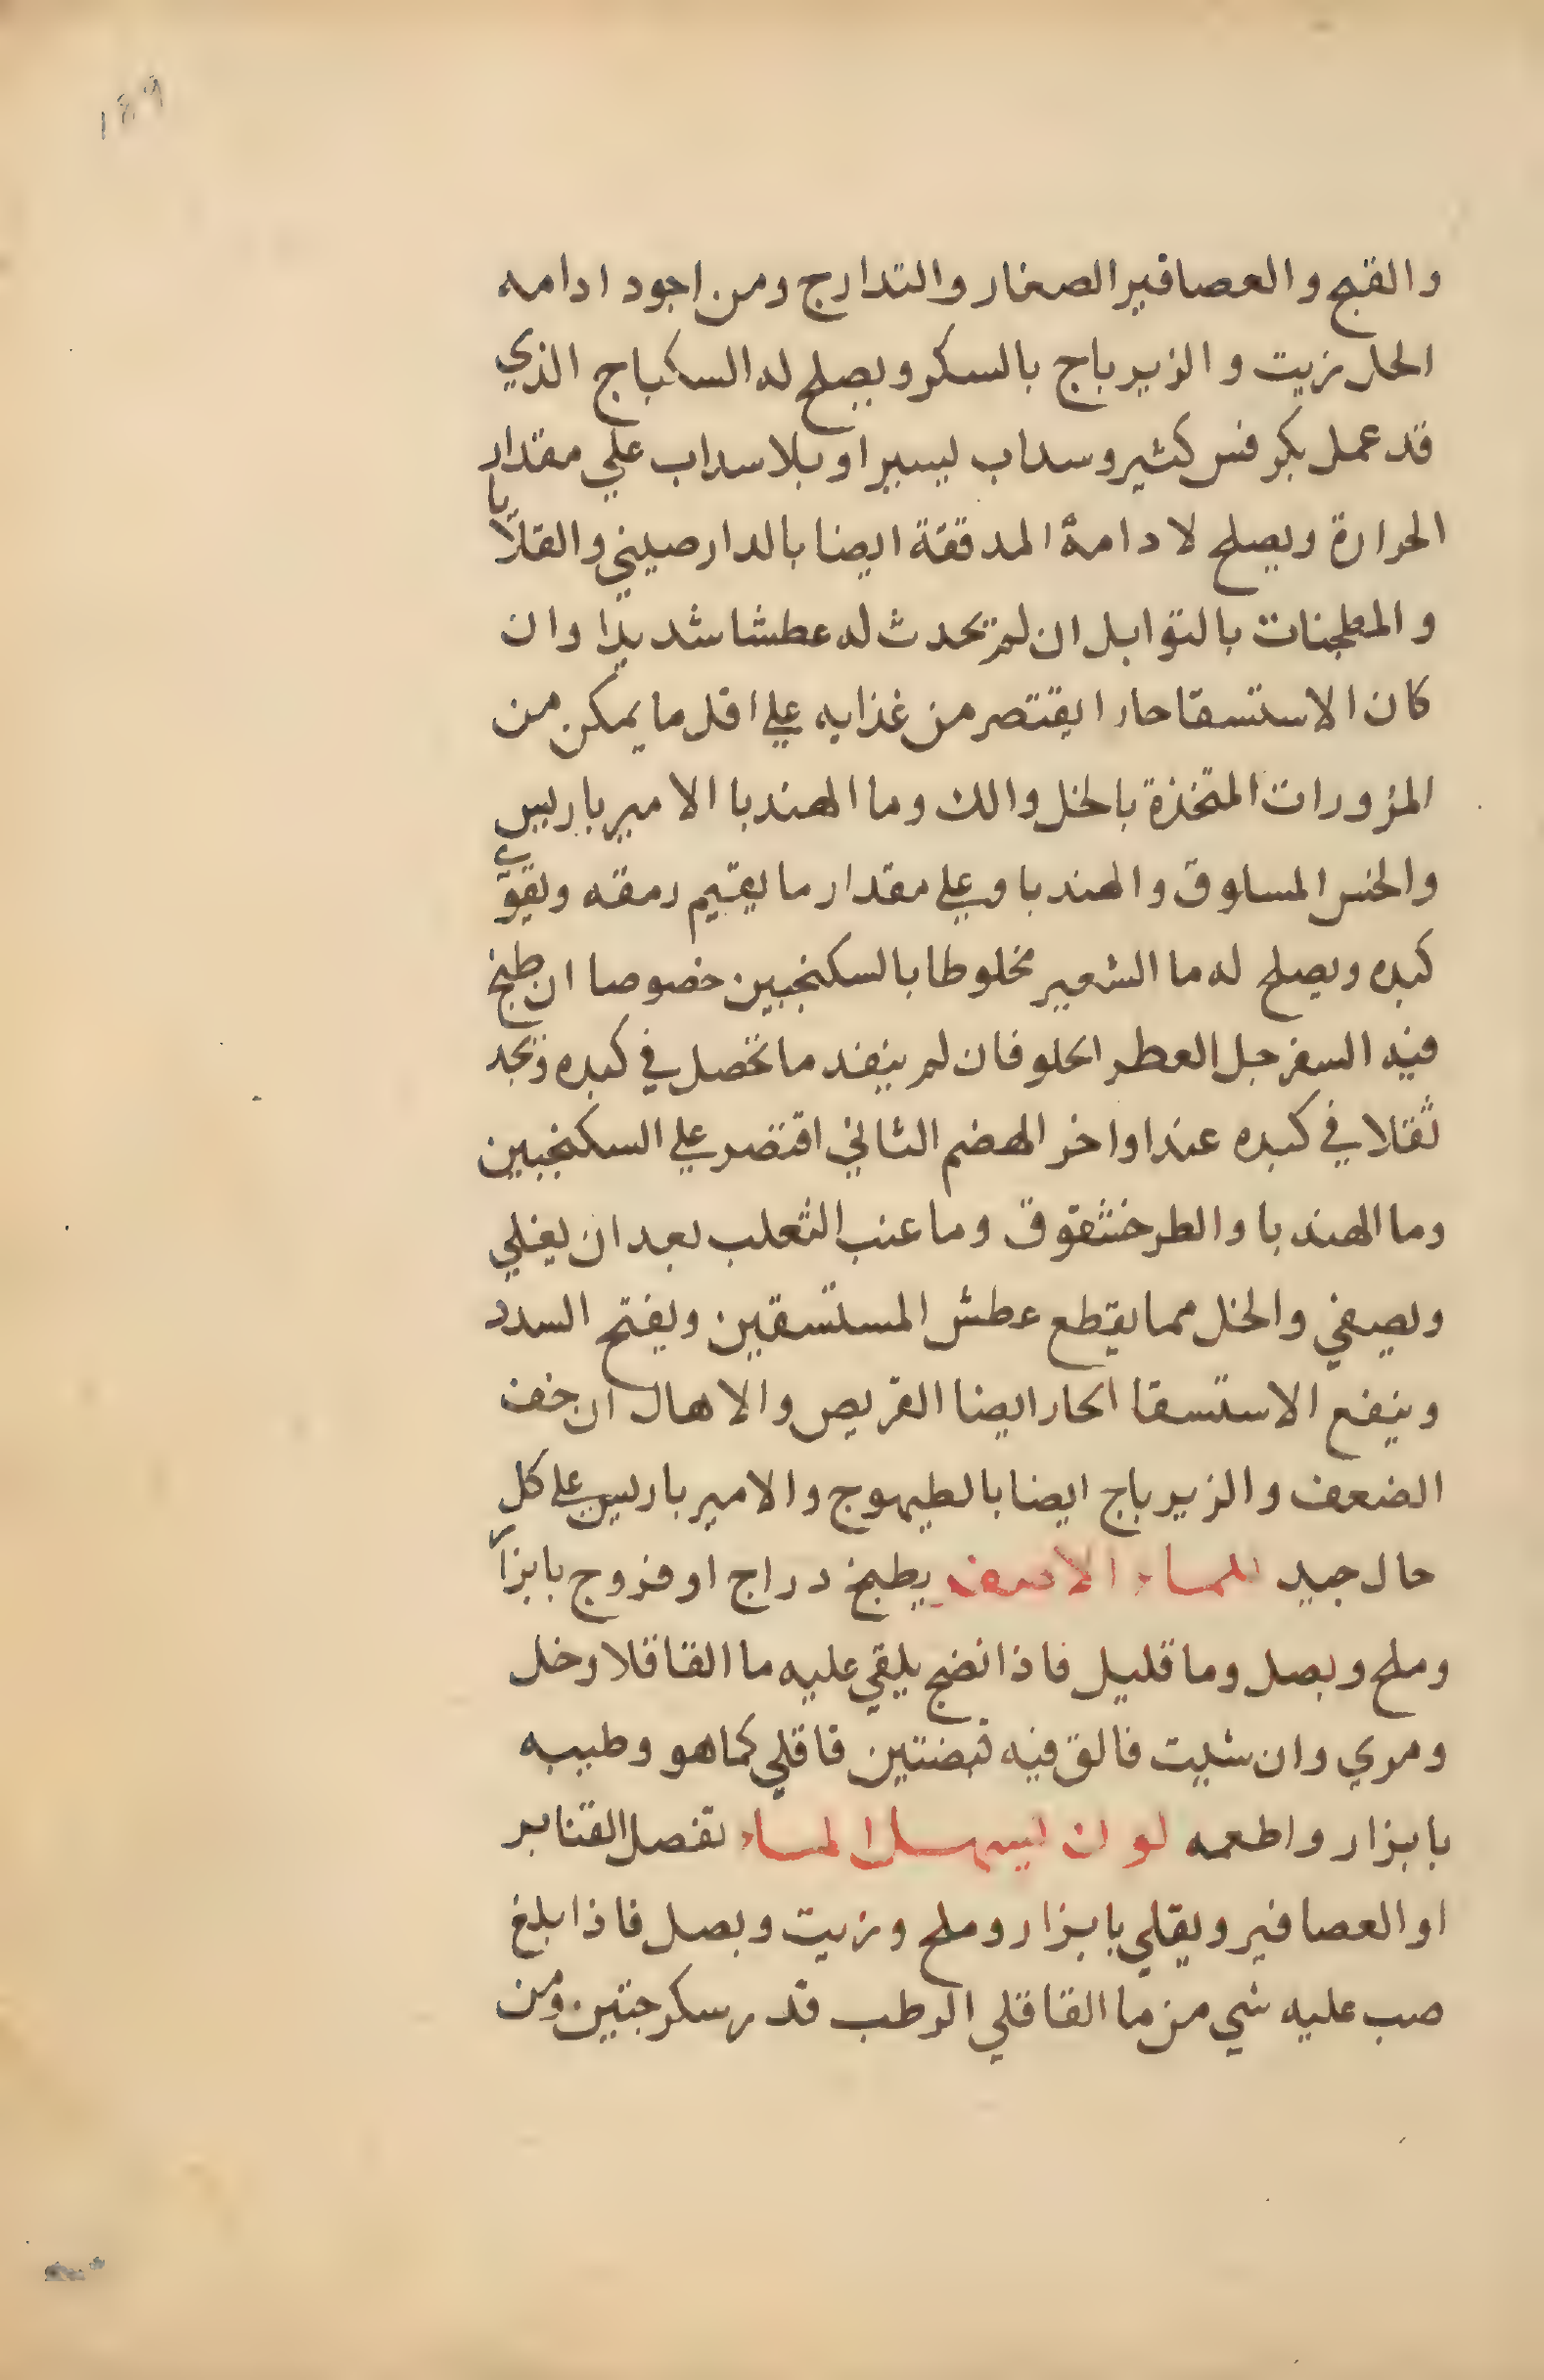 ١٨٩
والقبج والعصافير الصغار والتدارج ومن اجود ادامه
الحل زيت والزيرباج بالسكر ويصلح له السكباج الذي
قد عمل بكرفس كثير وسداب ليسير او بلا سداب علي مقدار
الحرارة ويصلح لادامة المدققة ايضا بالدارصيني والقلايا
والمطجنات بالتوابل ان لم تحدث له عطشا شديدا وان
كان الاستسقا حارا يقتصر من غذايه علي اقل ما يمكن من
المزورات المتخذة بالخل والك وما الهندبا الامير باريس
والخس المسلوق والهندبا وعلي مقدار ما يقيم رمقه ويقوي
كبده ويصلح له ما الشعير مخلوطا بالسكنجبين خصوصا ان طبخ
فيه السفرجل العطر الحلو فان لم ينفد ما تحصل في كبده وتجد
ثقلا في كبده عند اواخر الهضم الثاني اقتصر علي السكنجبين
وما الهندبا والطرخشقوق وما عنب الثعلب بعد ان يغلي
ويصفي والخل مما يقطع عطش المستسقين ويفتح السدد
وينفع الاستسقا الحار ايضا القريص والاهال ان خف
الضعف والزيرباج ايضا بالطيهوج والامير باريس علي كل
حال جيد للماء الاصفر يطبخ دراج او فروج بابزار
وملح وبصل وما قليل فاذا نضج يلقي عليه ما القاقلا وخل
ومري وان شيت فالق فيه قبضتين قاقلي كما هو وطيبه
بابزار واطعمه لون ليسهل الماء تفصل القنابر
او العصافير ويقلي بابزار وملح وزيت وبصل فاذا بلغ
صب عليه شي من ما القاقلي الرطب قدر سكرجتين ومن